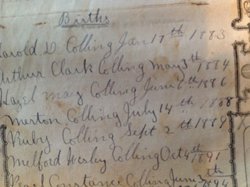 Births
Harold D. Colling Jan 17th 1883
Arthur Clark Colling May 3th 1884
Hazel May Colling June 6th 1886
Merton Colling July 14th 1888
Ruby Colling Sept 2th 1889
Milford Wesley Colling Oct 1891
Constance Colling June